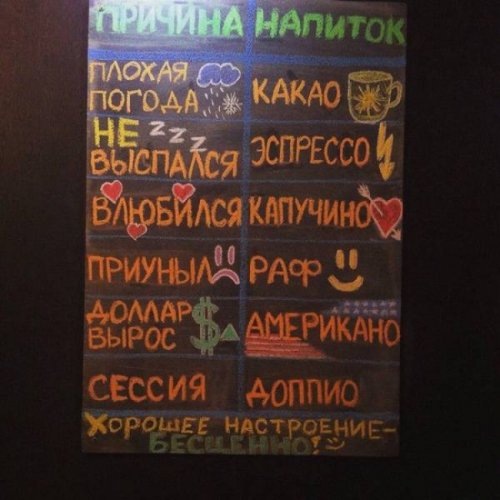 ПРИЧИНА НАПИТОК
ПЛОХАЯ
ПОГОДА КАКАО
НЕ zzz
ВЫСПАЛСЯ ЭСПРЕССО
ВЛЮБИЛСЯ КАПУЧИНО
ПРИУНЫЛ РАФ
ДОЛЛАР
ВЫРОС $ АМЕРИКАНО
СЕССИЯ ДОППИО
ХОРОШЕЕ НАСТРОЕНИЕ-
БЕСЦЕННО!